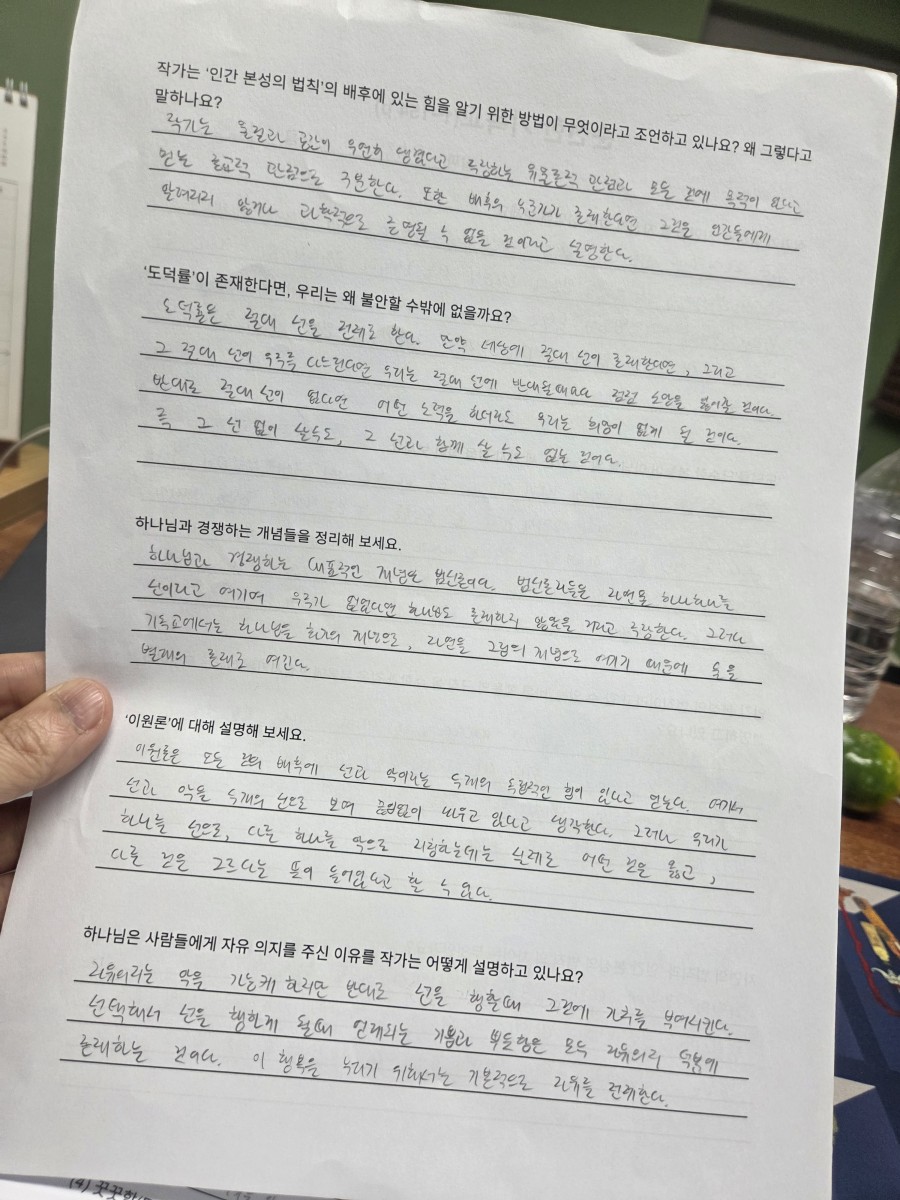 작가는 '인간 본성의 법칙'의 배후에 있는 힘을 알기 위한 방법이 무엇이라고 조언하고 있나요? 왜 그렇다고
말하나요?
작가는 물질과 공간이 우연히 생겼다고 주장하는 유물론적 관점과 모든 것에 목적이 있다고
믿는 종교적 관점으로 구분한다. 또한 배후의 누군가가 존재한다면 그것을 인간들에게
알려지지 않거나 과학적으로 증명될 수 없을 것이라고 설명한다.
'도덕률'이 존재한다면, 우리는 왜 불안할 수밖에 없을까요?
도덕률은 절대 선을 전제로 한다. 만약 세상에 절대 선이 존재한다면, 그리고
그 절대 선이 우주를 다스린다면 우리는 절대 선에 반대될때마다 점점 소망을 잃어갈 것이다.
반대로 절대 선이 없다면 어떤 노력을 하더라도 우리는 희망이 없게 될 것이다.
즉 그 선 없이 살수도, 그 선과 함께 살 수도 없는 것이다.
하나님과 경쟁하는 개념들을 정리해 보세요.
하나님과 경쟁하는 대표적인 개념은 범신론이다. 범신론자들은 자연물 하나하나를
신이라고 여기며 우주가 없었다면 하나님도 존재하지 않았을 거라고 주장한다. 그러나
기독교에서는 하나님을 화가의 개념으로, 자연을 그림의 개념으로 여기기 때문에 둘을
별개의 존재로 여긴다.
'이원론'에 대해 설명해 보세요.
이원론은 모든 것의 배후에 선과 악이라는 두개의 독립적인 힘이 있다고 믿는다. 여기서
선과 악을 두개의 신으로 보며 끊임없이 싸우고 있다고 생각한다. 그러나 우리가
하나를 선으로, 다른 하나를 악으로 지칭하는데는 실제로 어떤 것은 옳고,
다른 것은 그르다는 뜻이 들어있다고 할 수 있다.
하나님은 사람들에게 자유 의지를 주신 이유를 작가는 어떻게 설명하고 있나요?
자유의지는 악을 가능케 하지만 반대로 선을 행할때 그것에 가치를 부여시킨다.
선택해서 선을 행하게 될때 얻게되는 기쁨과 뿌듯함은 모두 자유의지 덕분에
존재하는 것이다. 이 행복을 누리기 위해서는 기본적으로 자유를 전제한다.